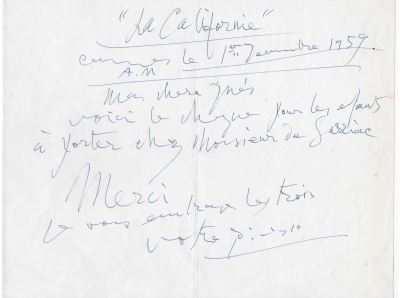 "La Californie"
Cannes le 1er Décembre 1959.
A.M
Ma chere Inés
voici le cheque pour les enfants
à porter chez Monsieur de Sarriac
Merci
Je vous embrasse les trois
votre Picasso